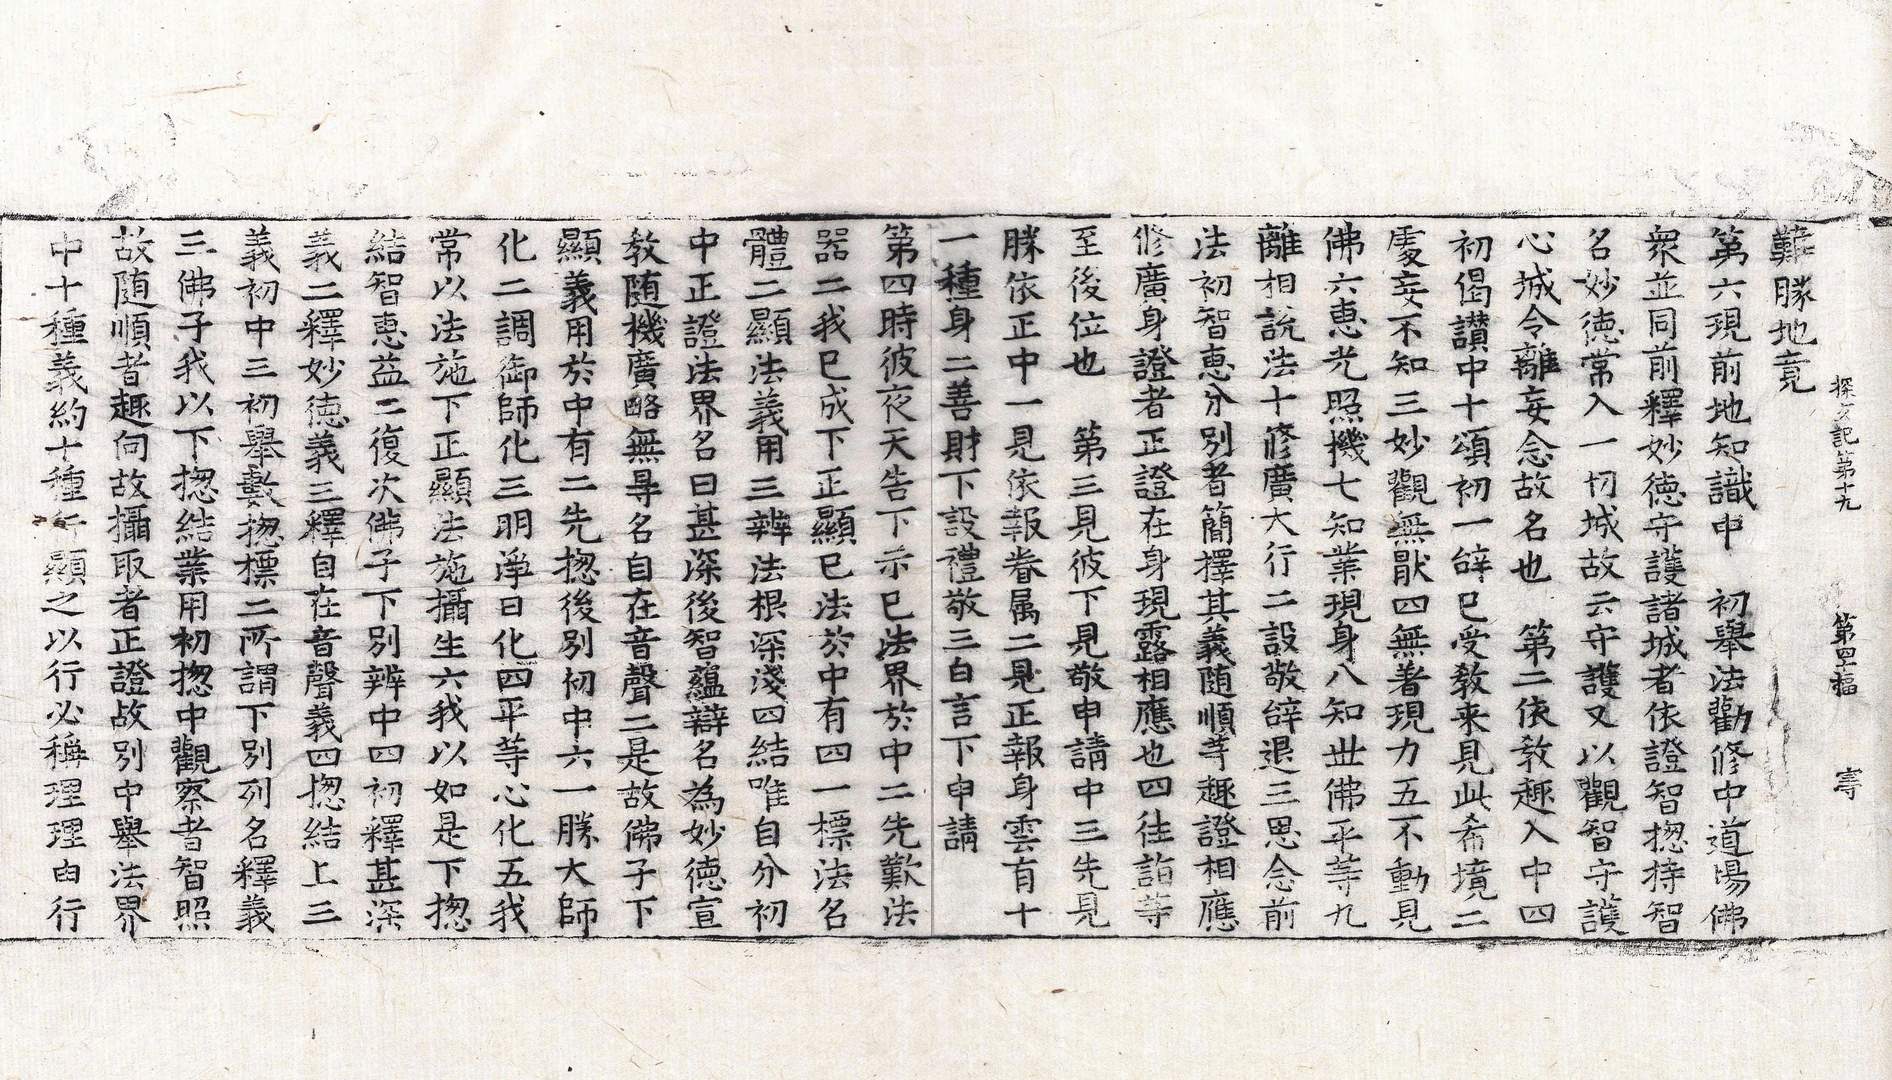 探玄記第十九 第四十幅 寄
難勝地竟
第六現前地知識中 初舉法勸修中道場佛
衆並同前釋妙徳守護諸城者依證智揔持智
名妙徳常入一切城故云守護又以觀智守護
心城令離妄念故名也 第二依敎趣入中四
初偈讃中十頌初一辝已受敎来見此希境二
處妄不知三妙觀無猒四無著現力五不動見
佛六恵光照機七知業現身八知丗佛平等九
離相説法十修廣大行二設敬辝退三思念前
法初智恵分別者簡擇其義随順等趣證相應
修廣身證者正證在身現露相應也四往詣等
至後位也 第三見彼下見敬申請中三先見
勝依正中一見依報眷属二見正報身雲有十
一種身二善財下設禮敬三白言下申請
第四時彼夜天告下示已法界於中二先歎法
器二我已成下正顯已法於中有四一標法名
體二顯法義用三辨法根深淺四結唯自分初
中正證法界名曰甚深後智蘊辯名為妙徳宣
敎随機廣略無㝵名自在音聲二是故佛子下
顯義用於中有二先揔後別初中六一勝大師
化二調御師化三明淨日化四平等心化五我
常以法施下正顯法施攝生六我以如是下揔
結智恵益二復次佛子下別辨中四初釋甚深
義二釋妙徳義三釋自在音聲義四揔結上三
義初中三初舉數揔標二所謂下別列名釋義
三佛子我以下揔結業用初揔中觀察者智照
故随順者趣向故攝取者正證故別中舉法界
中十種義約十種行顯之以行必稱理理由行